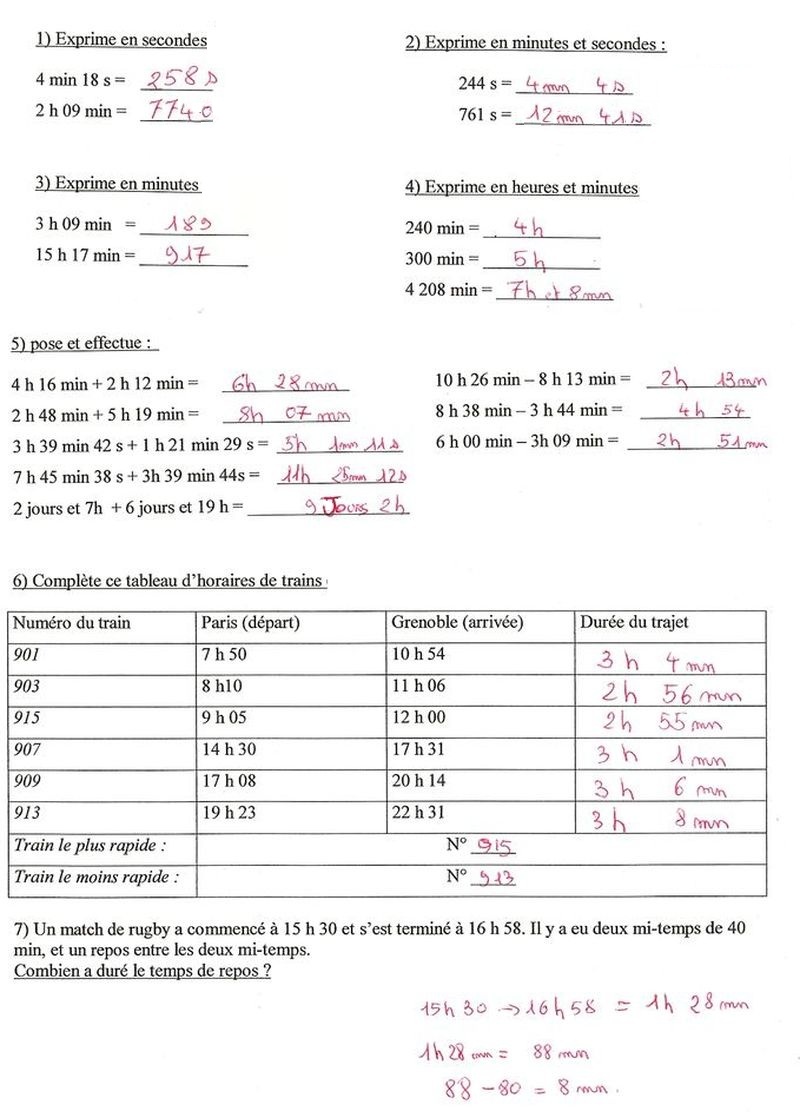 1) Exprime en secondes
4 min 18 s = 258 s
2 h 09 min = 7740
2) Exprime en minutes et secondes :
244 s = 4 mn 4 s
761 s = 12 mn 41 s
3) Exprime en minutes
3 h 09 min = 189
15 h 17 min = 917
4) Exprime en heures et minutes
240 min = 4h
300 min = 5h
4 208 min = 7h et 8 mn
5) pose et effectue :
4 h 16 min + 2 h 12 min = 6h 28 mn
2 h 48 min + 5 h 19 min = 8h 07 mn
3 h 39 min 42 s + 1 h 21 min 29 s = 5h 1mn 11 s
7 h 45 min 38 s + 3h 39 min 44s = 11h 25mn 12s
2 jours et 7h + 6 jours et 19 h = 9 Jours 2h
10 h 26 min – 8 h 13 min = 2h 13min
8 h 38 min – 3 h 44 min = 4h 54
6 h 00 min – 3h 09 min = 2h 51mn
6) Complète ce tableau d’horaires de trains
Numéro du train Paris (départ) Grenoble (arrivée) Durée du trajet
901 7 h 50 10 h 54 3 h 4 mn
903 8 h10 11 h 06 2h 56 mn
915 9 h 05 12 h 00 2h 55 mn
907 14 h 30 17 h 31 3 h 1 mn
909 17 h 08 20 h 14 3 h 6 mn
913 19 h 23 22 h 31 3 h 8 mn
Train le plus rapide : N° 915
Train le moins rapide : N° 913
7) Un match de rugby a commencé à 15 h 30 et s’est terminé à 16 h 58. Il y a eu deux mi-temps de 40
min, et un repos entre les deux mi-temps.
Combien a duré le temps de repos ?
15h 30 → 16h 58 = 1h 28 mn
1h 28 mn = 88 mn
88 - 80 = 8 mn.